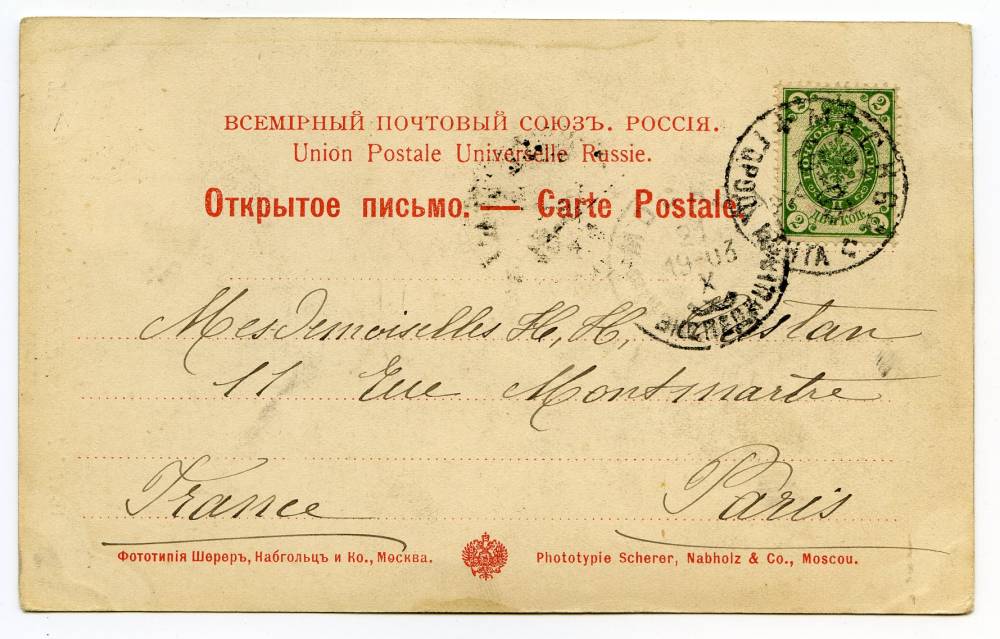 ВСЕМІРНЫЙ ПОЧТОВЫЙ СОЮЗЪ. РОССІЯ.
Union Postale Universelle Russie.
Открытое письмо. — Carte Postale
2 2
2 2
ДВѢ КОП.
ГОРОД. ПОЧТА
27
19-03
X
Mesdemoiselles H, H,
11 Rue Montmartre
France Paris
Фототипія Шереръ, Набгольцъ и Ко., Москва. Phototypie Scherer, Nabholz & Co., Moscou.